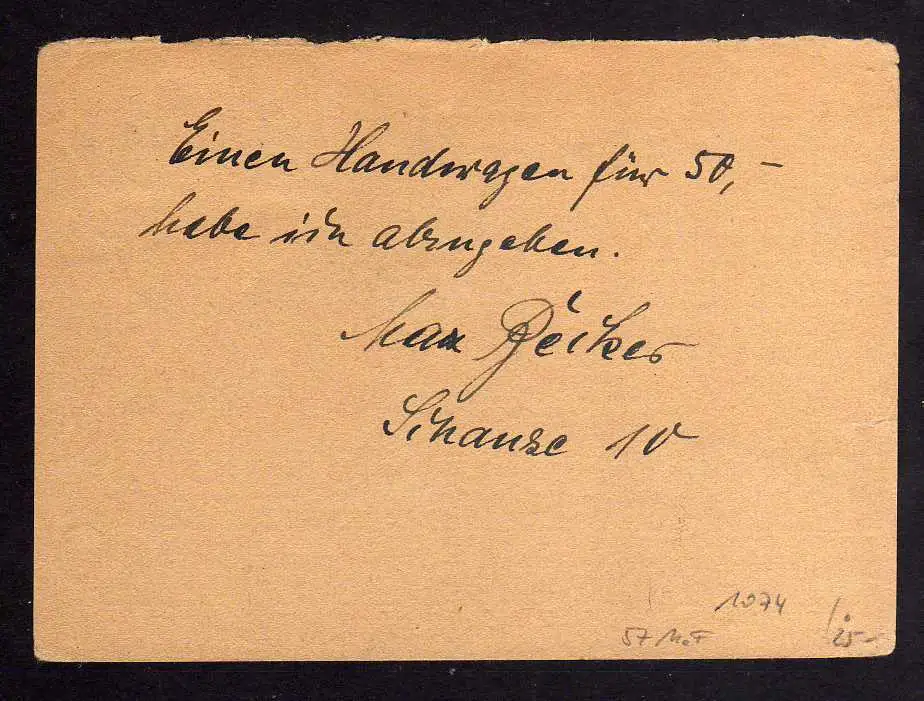 Einen Handwagen für 50,-
habe ich abzugeben.
Max Becker
Schanze 10
1074
57 MeF
25-